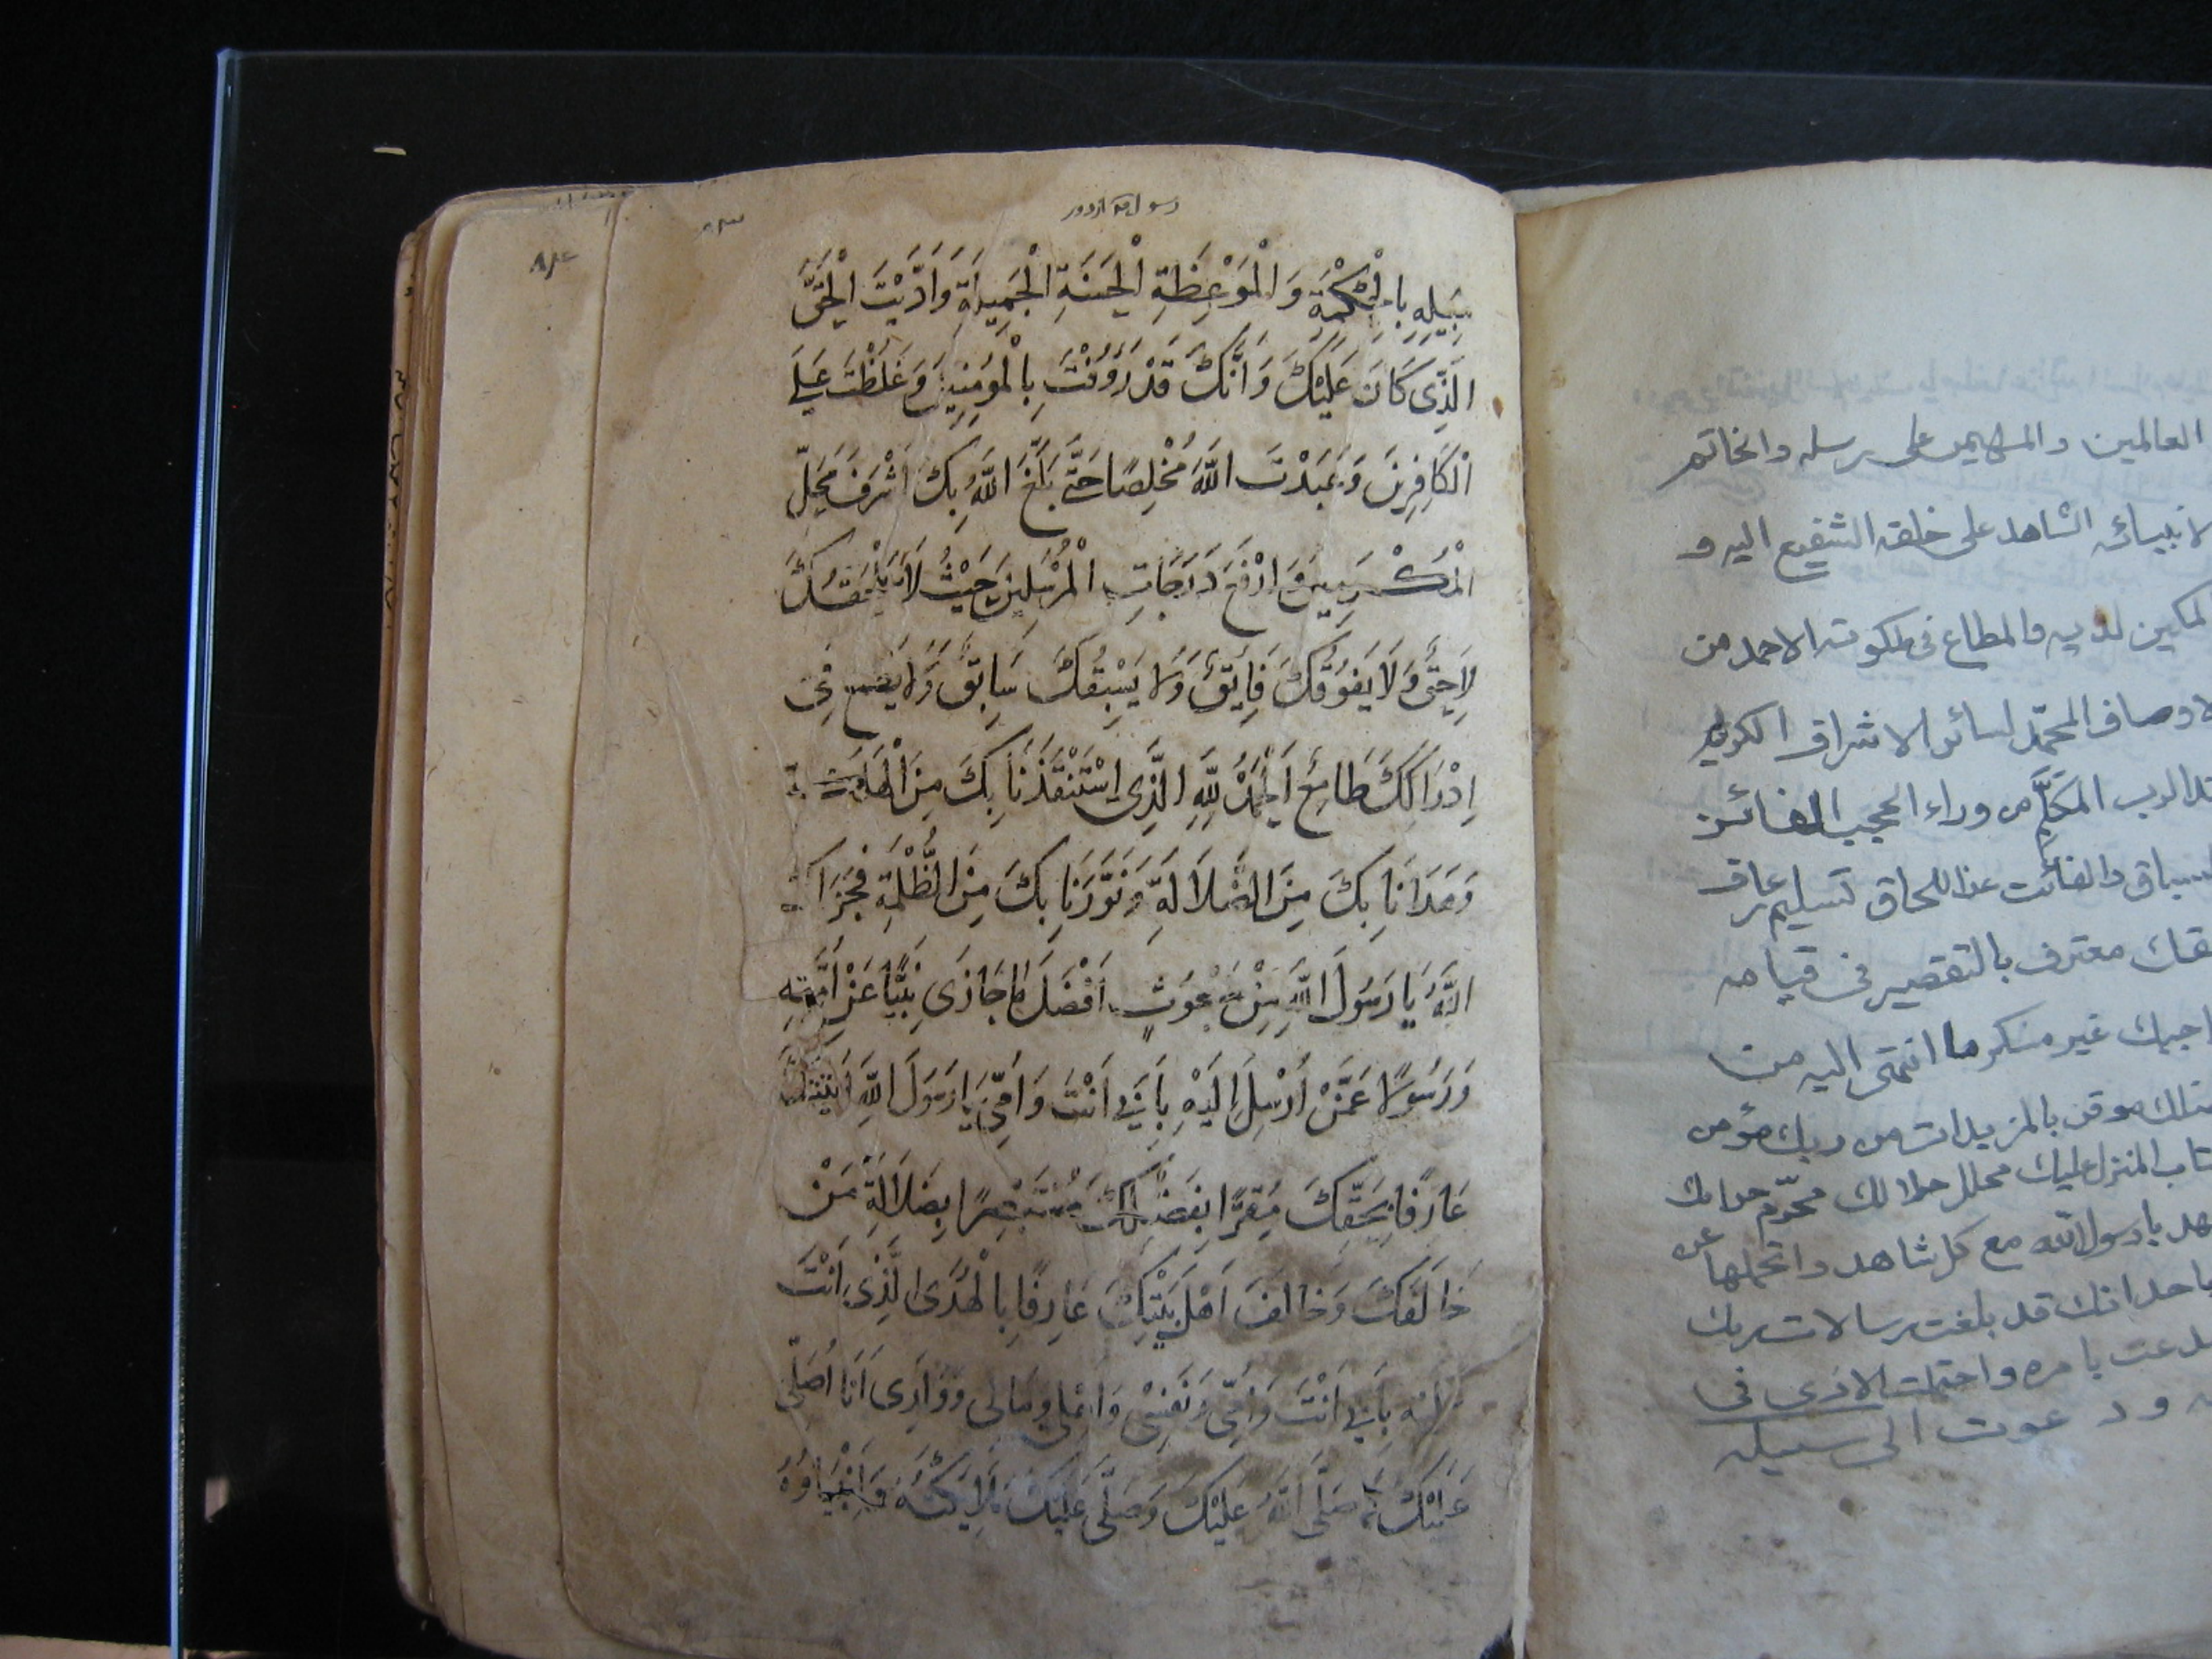 العالمين والمهيمن على رسله والخاتم
لانبيائه الشاهد على خلقه الشفيع اليه و
المكين لديه والمطاع في ملكوته الاحمد من
الاوصاف المحمد لسائر الاشراف الكريم
عند الرب المكلم من وراء الحجب الفائز
بالسباق والفائت عن اللحاق تسليم عارف
بحقك معترف بالتقصير في قيامه
بواجبك غير منكر ما انتهى اليه من
فضلك موقن بالمزيدات من ربك مؤمن
بالكتاب المنزل عليك محلل حلالك محرم حرامك
اشهد يا رسول الله مع كل شاهد واتحملها عن
جاحد انك قد بلغت رسالات ربك
وصدعت بامره واحتملت الاذى في
ودعوت الى سبيله
سَبِيلِهِ بِالْحِكْمَةِ وَالْمَوْعِظَةِ الْحَسَنَةِ الْجَمِيلَةِ وَاَدَّيْتَ الْحَقَّ
الَّذِى كَانَ عَلَيْكَ وَاَنَّكَ قَدْ رَؤُفْتَ بِالْمُؤْمِنِينَ وَغَلَظْتَ عَلَى
الْكَافِرِينَ وَعَبَدْتَ اللَّهَ مُخْلِصًا حَتَّى بَلَغَ اللَّهُ بِكَ اَشْرَفَ مَحَلِّ
الْمُكَرَّمِينَ وَاَرْفَعَ دَرَجَاتِ الْمُرْسَلِينَ حَيْثُ لَا يَلْحَقُكَ
لَاحِقٌ وَلَا يَفُوقُكَ فَايِقٌ وَلَا يَسْبِقُكَ سَابِقٌ وَلَا يَطْمَعُ فِى
اِدْرَاكِكَ طَامِعٌ اَلْحَمْدُ لِلَّهِ الَّذِى اسْتَنْقَذَنَا بِكَ مِنَ الْهَلَكَةِ
وَهَدَانَا بِكَ مِنَ الضَّلَالَةِ وَنَوَّرَنَا بِكَ مِنَ الظُّلْمَةِ فَجَزَاكَ
اللَّهُ يَا رَسُولَ اللَّهِ مِنْ مَبْعُوثٍ اَفْضَلَ مَا جَازَى نَبِيًّا عَنْ اُمَّتِهِ
وَرَسُولًا عَمَّنْ اُرْسِلَ اِلَيْهِ بِاَبِى اَنْتَ وَاُمِّى يَا رَسُولَ اللَّهِ
عَارِفًا بِحَقِّكَ مُقِرًّا بِفَضْلِكَ مُسْتَبْصِرًا بِضَلَالَةِ مَنْ
خَالَفَكَ وَخَالَفَ اَهْلَ بَيْتِكَ عَارِفًا بِالْهُدَى الَّذِى اَنْتَ
بِاَبِى اَنْتَ وَاُمِّى وَنَفْسِى وَاَهْلِى وَمَالِى وَوَلَدِى اَنَا اُصَلِّى
عَلَيْكَ كَمَا صَلَّى اللَّهُ عَلَيْكَ وَصَلَّى عَلَيْكَ مَلَائِكَتُهُ وَاَنْبِيَاؤُهُ